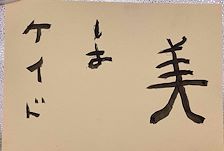 美
ケイド